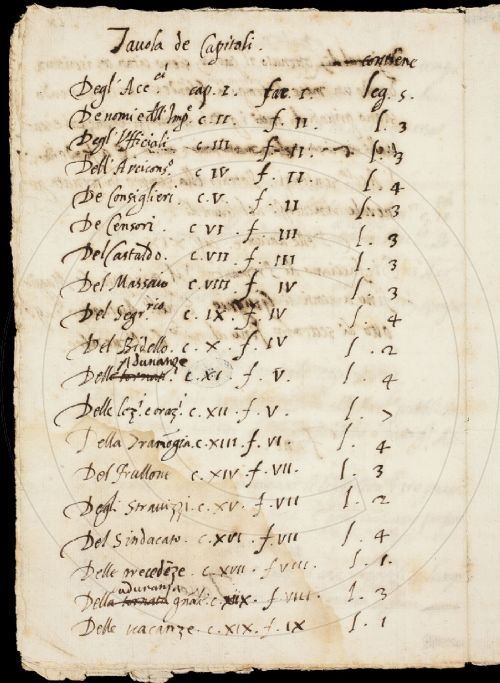 Tavola de Capitoli.
contiene
Degl' Acc.ci cap. I. fac. I. leg. 5.
De nomi e dell' Imp.e c. II f. II. l. 3
Degl' Ufficiali c. III f. II. l. 3
Dell' Arcicons.o c. IV f. II l. 4
De Consiglieri c. V. f. II l. 3
De Censori. c. VI f. III l. 3
Del Castaldo. c. VII f. III l. 3
Del Massaio c. VIII f. IV l. 3
Del Segr.rio c. IX f. IV l. 4
Del Bidello. c. X. f. IV l. 2
Adunanze
Delle tornate. c. XI f. V. l. 4
Delle lez.i e oraz.i c. XII. f. V. l. 7
Della Tramogia. c. XIII f. VI. l. 4
Del Frullone c. XIV f. VII. l. 3
Degli Stravizzi. c. XV. f. VII l. 2
Del Sindacato. c. XVI f. VII l. 4
Delle precedēze. c. XVII f. VIII. l. 1.
adunanza
Della tornata gnāl. c. XIIX f. VIII. l. 3
Delle vacanze. c. XIX. f. IX l. 1